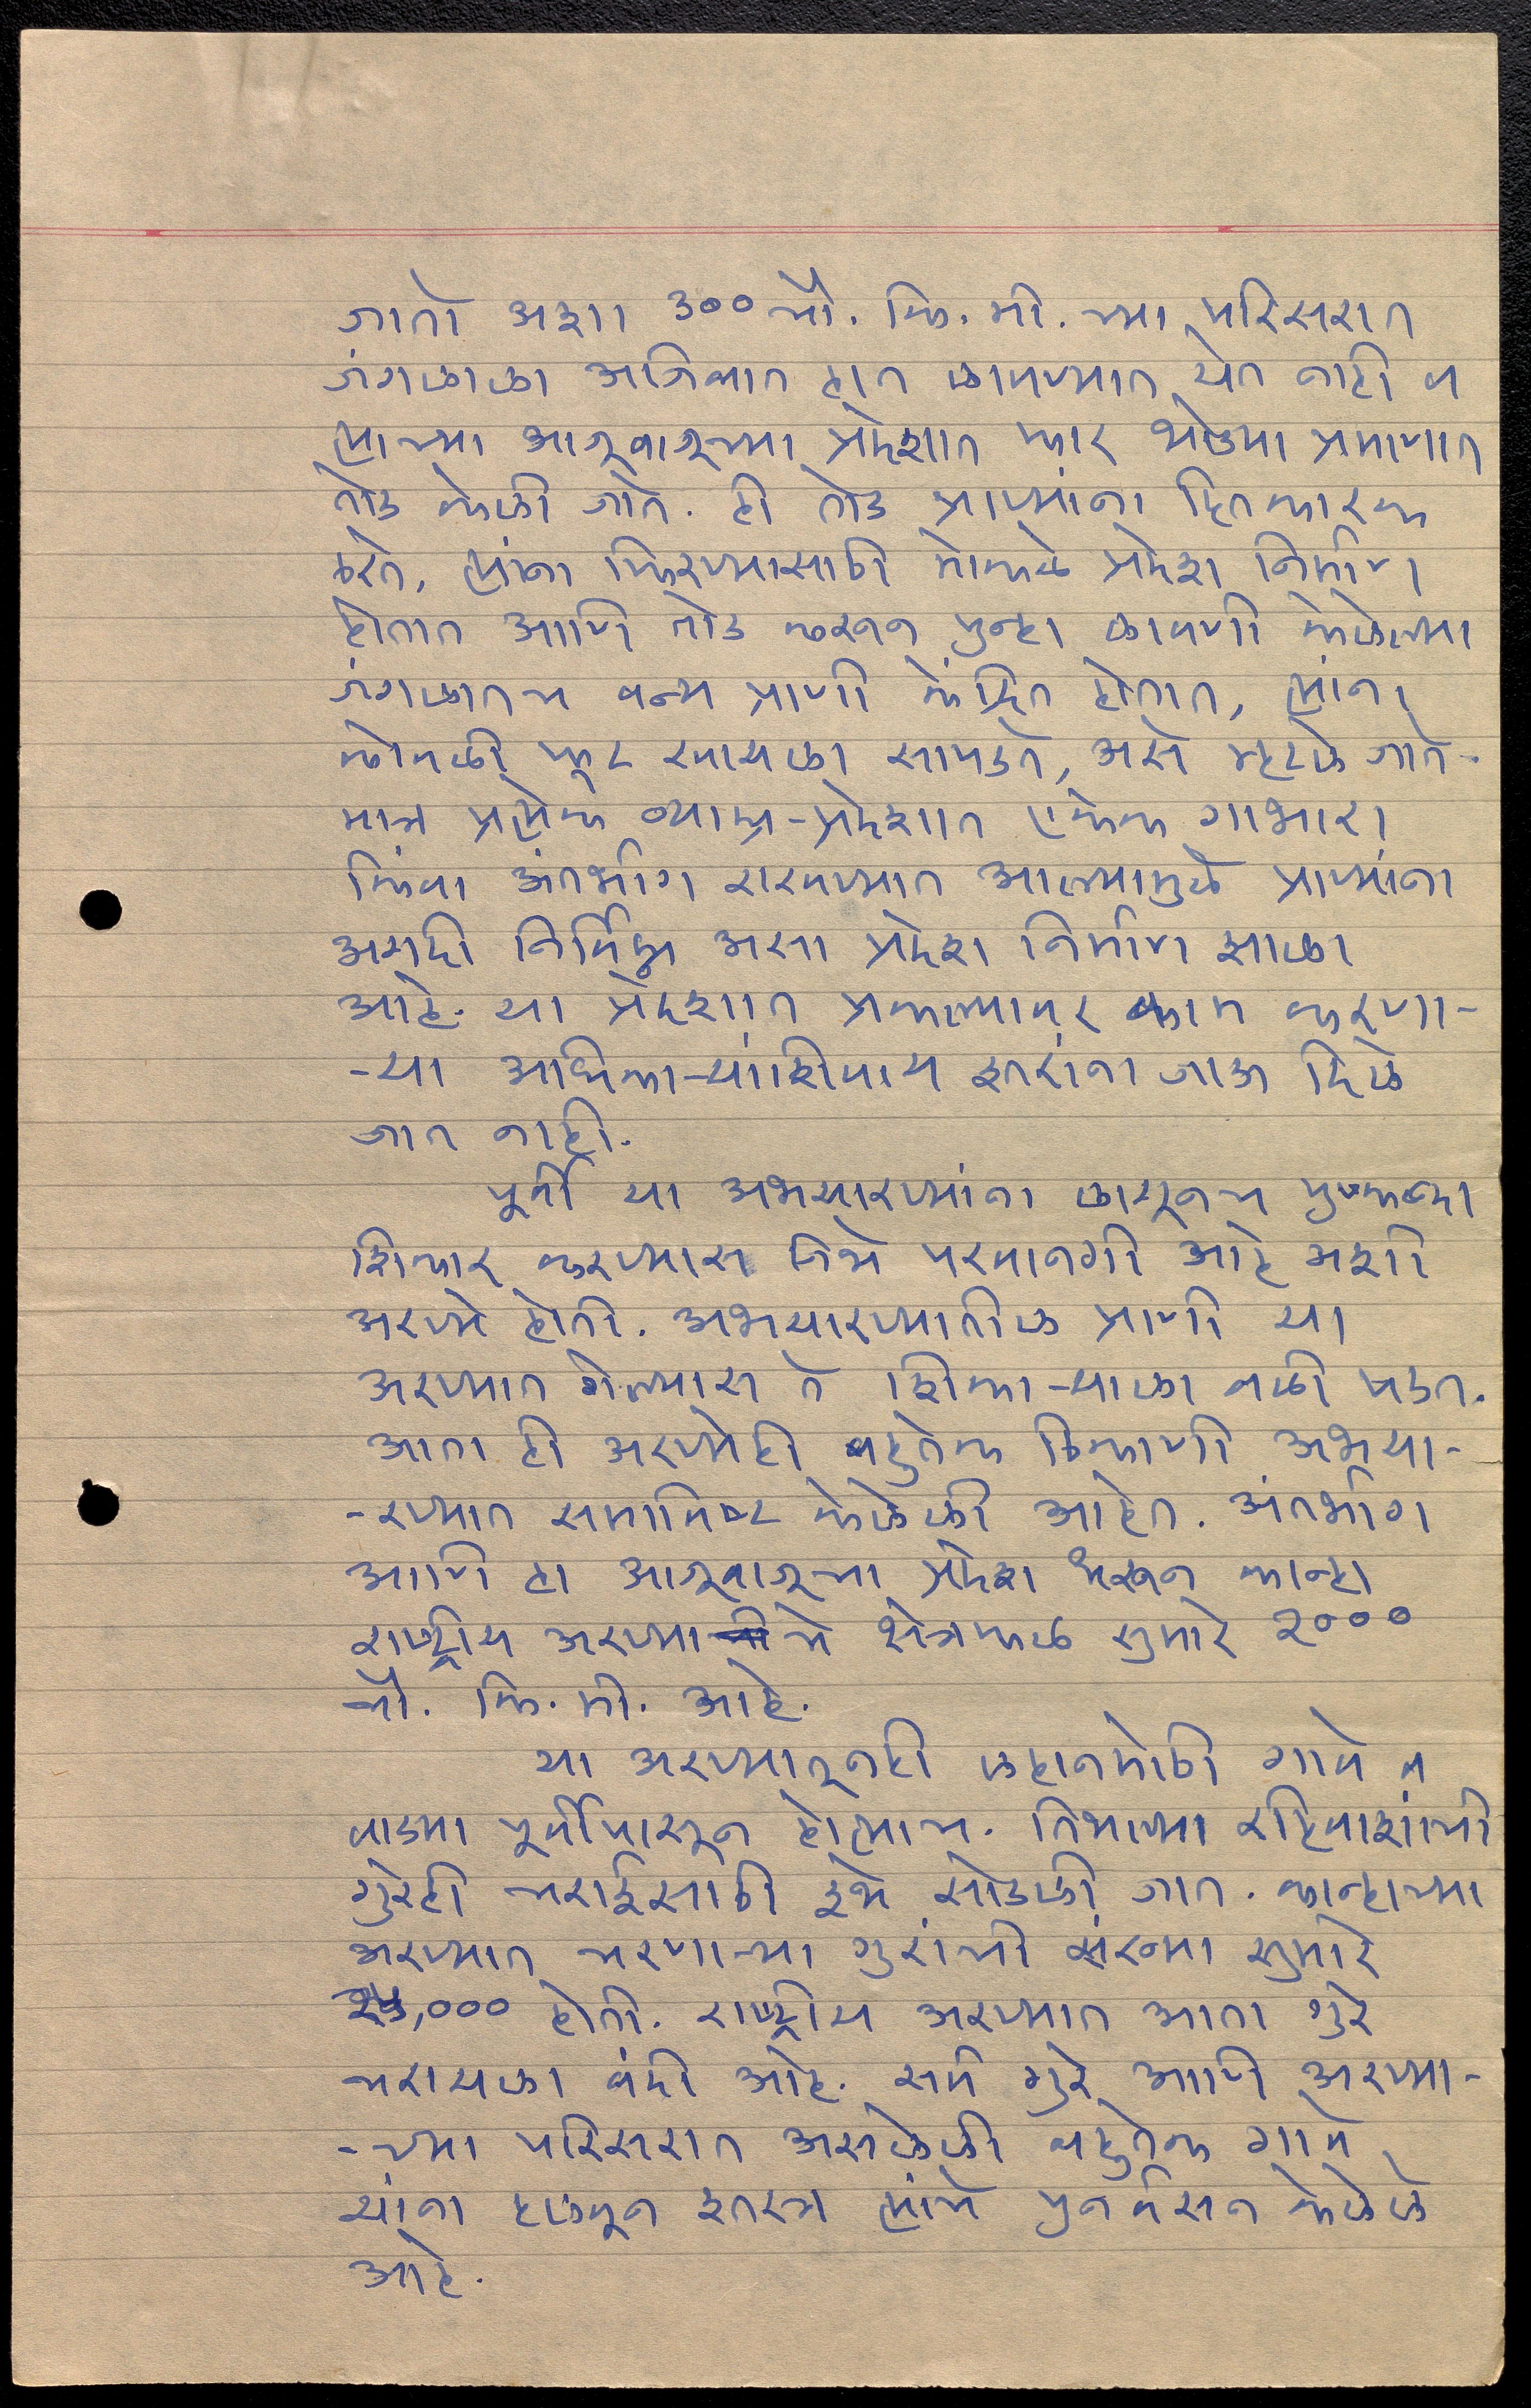 जातो अशा 300 चौ. कि. मी. च्या परिसरात
जंगलाला अजिबात हात लावण्यात येत नाही व
त्याच्या आजूबाजूच्या प्रदेशात फार थोड्या प्रमाणात
तोड केली जाते. ही तोड प्राण्यांना हितकारक
ठरते, त्यांना फिरण्यासाठी मोकळे प्रदेश निर्माण
होतात आणि तोड करून पुन्हा लावणी केलेल्या
जंगलातच वन्य प्राणी केंद्रित होतात, त्यांना
कोवळी फूट खायला सापडते, असे म्हटले जाते.
मात्र प्रत्येक व्याघ्र-प्रदेशात एकेक गाभारा
किंवा अंतर्भाग राखण्यात आल्यामुळे प्राण्यांना
अगदी निर्विघ्न असा प्रदेश निर्माण झाला
आहे. या प्रदेशांत प्रकल्पावर काम करणा-
-या अधिका-यांशिवाय इतरांना जाऊ दिले
जात नाही.
पूर्वी या अभयारण्यांना लागूनच पुष्कळदा
शिकार करण्यास जिथे परवानगी आहे अशी
अरण्ये होती. अभयारण्यातील प्राणी या
अरण्यात गेल्यास ते शिका-याला बळी पडत.
आता ही अरण्येही बहुतेक ठिकाणी अभया-
-रण्यात समाविष्ट केलेली आहेत. अंतर्भाग
आणि हा आजूबाजूचा प्रदेश धरून कान्हा
राष्ट्रीय अरण्याचे क्षेत्रफळ सुमारे २०००
चौ. कि. मी. आहे.
या अरण्यातूनही लहानमोठी गावे व
वाड्या पूर्वीपासून होत्याच. तिथल्या रहिवाशांची
गुरेही चराईसाठी इथे सोडली जात. कान्हाच्या
अरण्यात चरणा-या गुरांची संख्या सुमारे
२५,००० होती. राष्ट्रीय अरण्यात आता गुरे
चरायला बंदी आहे. सर्व गुरे आणि अरण्या-
-च्या परिसरात असलेली बहुतेक गावे
यांना हलवून इतरत्र त्यांचे पुनर्वसन केलेले
आहे.